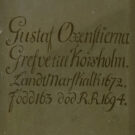 Gustaf Oxenstierna
Grefve til Korsholm.
Landt Marskalk 1672.
Född 163 död R.R. 1694.